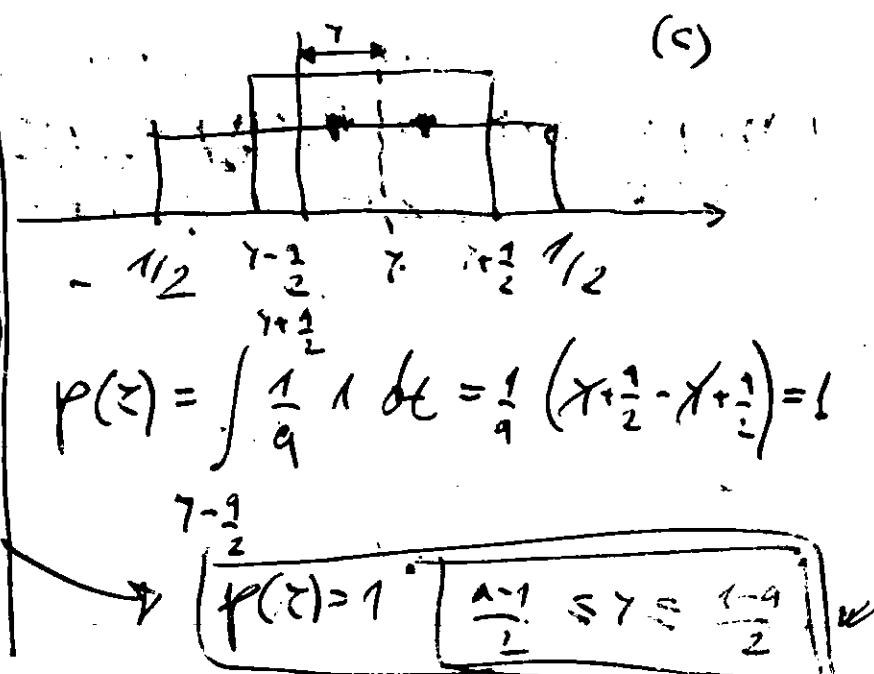 (c)
τ
- 1/2 τ-a/2 τ τ+a/2 1/2
φ(τ) = ∫_{τ-a/2}^{τ+a/2} 1/a 1 dt = 1/a (τ+a/2-τ+a/2)=1
φ(τ)=1 a-1/2 ≤ τ ≤ 1-a/2